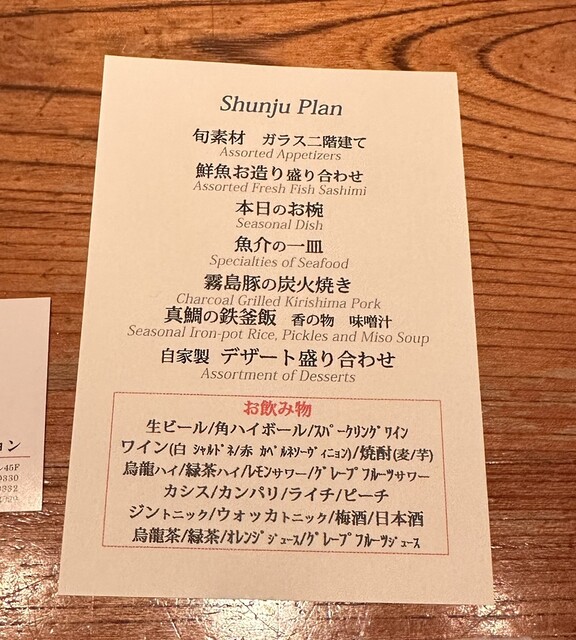 Shunju Plan
旬素材 ガラス二階建て
Assorted Appetizers
鮮魚お造り盛り合わせ
Assorted Fresh Fish Sashimi
本日のお椀
Seasonal Dish
魚介の一皿
Specialties of Seafood
霧島豚の炭火焼き
Charcoal Grilled Kirishima Pork
真鯛の鉄釜飯 香の物 味噌汁
Seasonal Iron-pot Rice, Pickles and Miso Soup
自家製 デザート盛り合わせ
Assortment of Desserts
お飲み物
生ビール/角ハイボール/ｽﾊﾟｰｸﾘﾝｸﾞﾜｲﾝ
ワイン(白 ｼｬﾙﾄﾞﾈ/赤 ｶﾍﾞﾙﾈｿｰｳﾞｨﾆｮﾝ)/焼酎(麦/芋)
烏龍ハイ/緑茶ハイ/ﾚﾓﾝサワー/ｸﾞﾚｰﾌﾟﾌﾙｰﾂサワー
カシス/カンパリ/ライチ/ピーチ
ジントニック/ウォッカトニック/梅酒/日本酒
烏龍茶/緑茶/ｵﾚﾝｼﾞｼﾞｭｰｽ/ｸﾞﾚｰﾌﾟﾌﾙｰﾂｼﾞｭｰｽ
ョン
45F
0330
0332